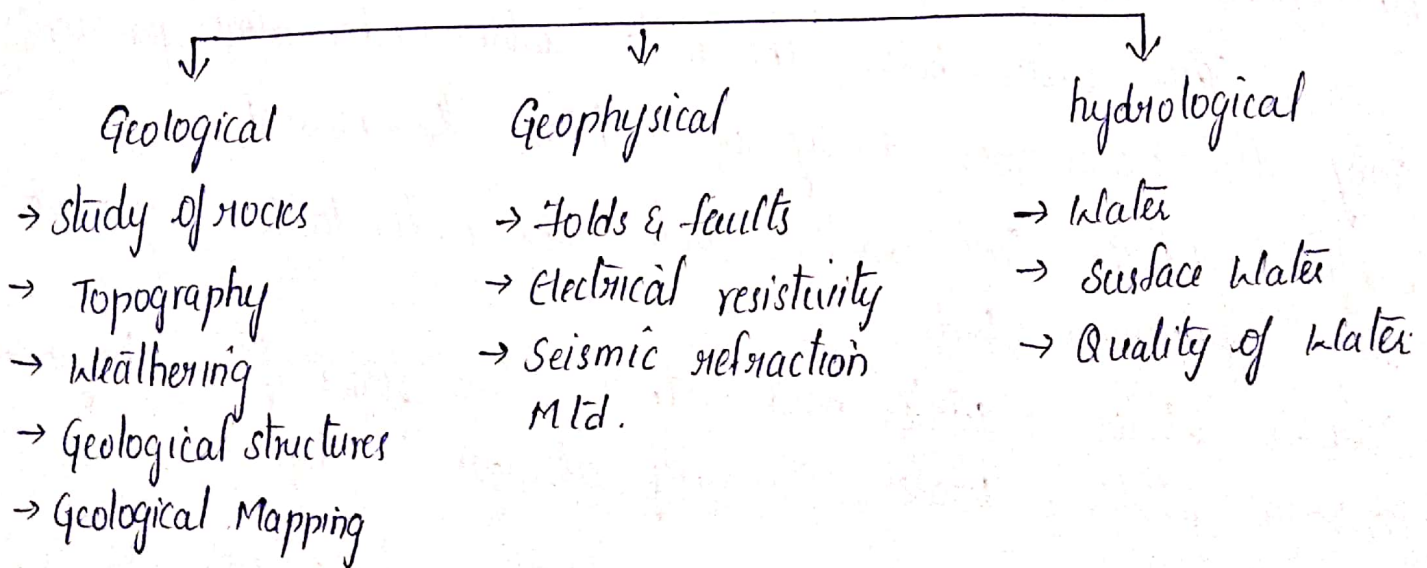 Geological
→ study of rocks
→ Topography
→ Weathering
→ Geological structures
→ Geological Mapping
Geophysical
→ Folds & faults
→ Electrical resistivity
→ Seismic refraction
Mtd.
hydrological
→ Water
→ Surface Water
→ Quality of Water